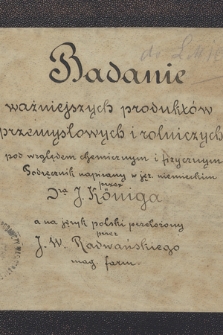 Badanie
ważniejszych produktów
przemysłowych i rolniczych
pod względem chemicznym i fizycznym
Podręcznik napisany w jęz. niemieckim
przez
Dra J. Königa
a na język polski przełożony
przez
J. W. Radwańskiego
mag. farm.